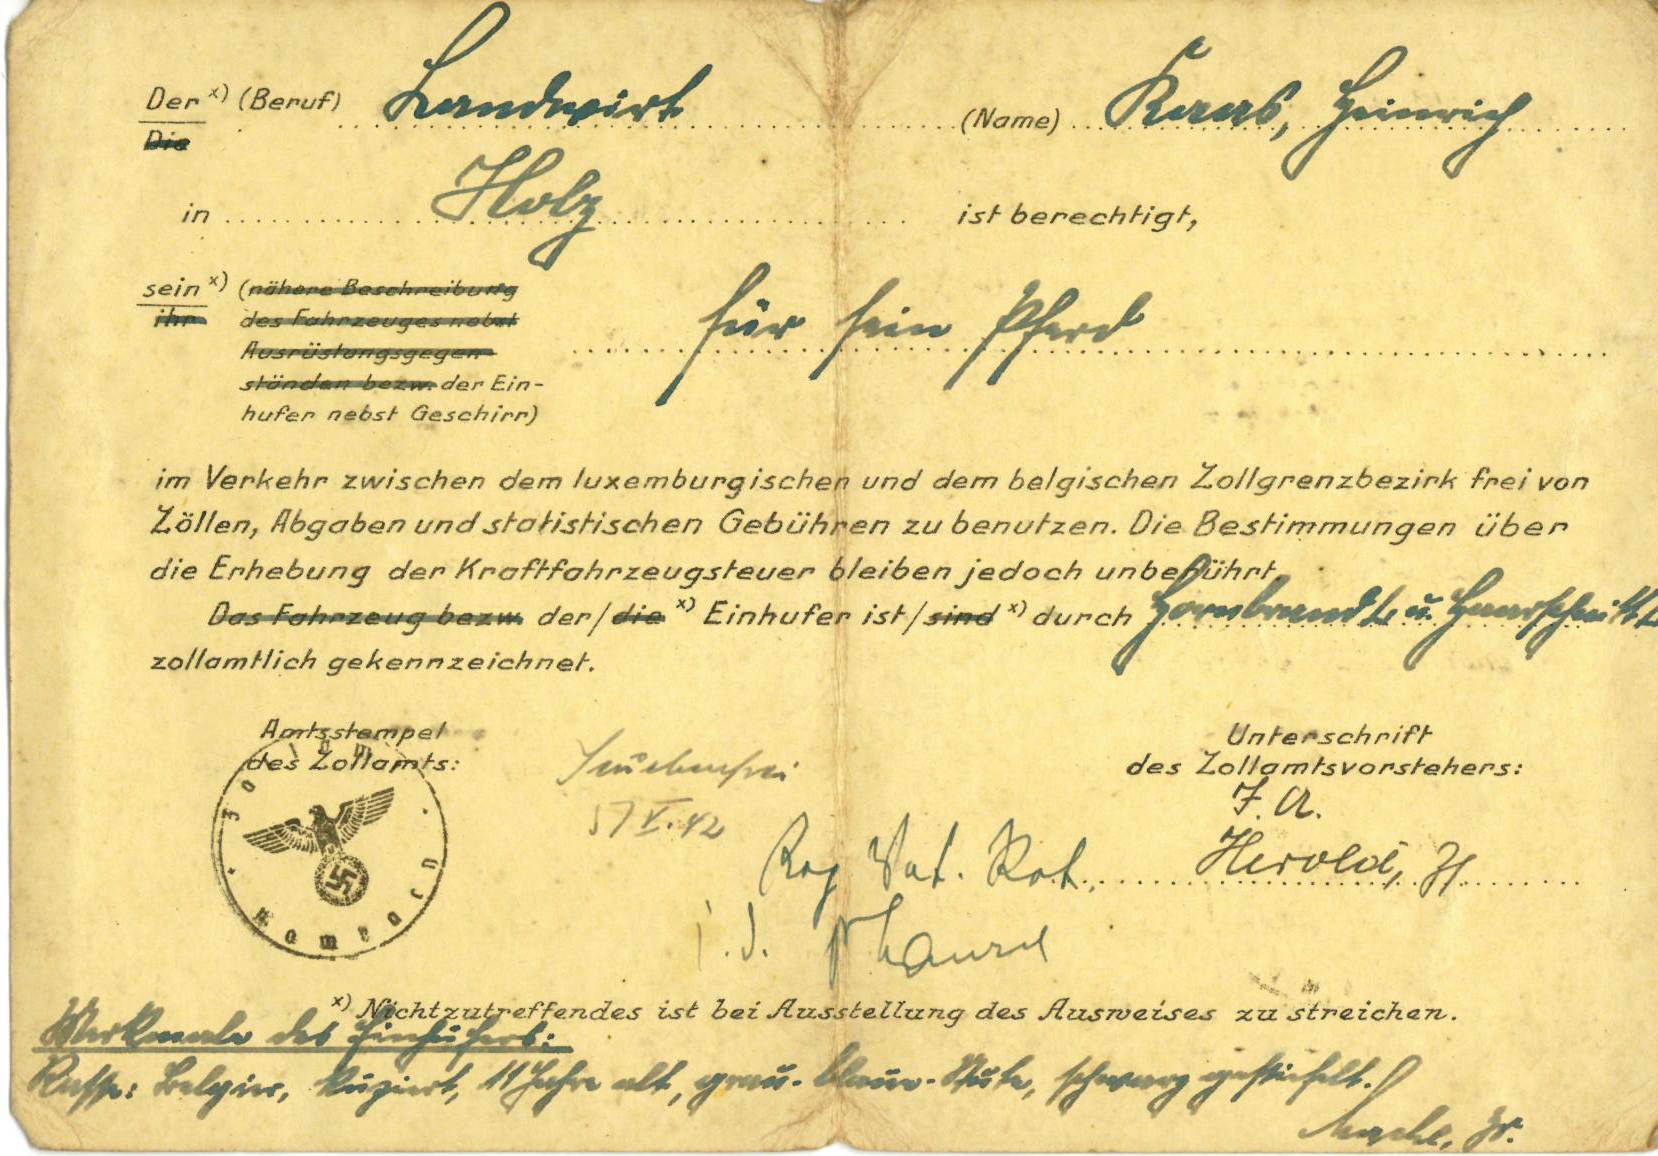 Der x) (Beruf) Landwirt (Name) Kaas, Heinrich
Die
in Holz ist berechtigt,
sein x) (nähere Beschreibung
ihr des Fahrzeuges nebst
Ausrüstungsgegen-
ständen bezw. der Ein-
hufer nebst Geschirr)
für sein Pferd
im Verkehr zwischen dem luxemburgischen und dem belgischen Zollgrenzbezirk frei von
Zöllen, Abgaben und statistischen Gebühren zu benutzen. Die Bestimmungen über
die Erhebung der Kraftfahrzeugsteuer bleiben jedoch unberührt.
Das Fahrzeug bezw. der/die x) Einhufer ist/sind x) durch Hornbrand u. Haarschnitt
zollamtlich gekennzeichnet.
Amtsstempel
des Zollamts:
Seuchenfrei
V. 42
Reg Vet. Rat.
Unterschrift
des Zollamtsvorstehers:
I. A.
Herold,
x) Nichtzutreffendes ist bei Ausstellung des Ausweises zu streichen.
Merkmale des Einhufers:
Rasse: Belgier, kupiert, 11 Jahre alt, grau-blaue-Stute, schwarz gestiefelt.